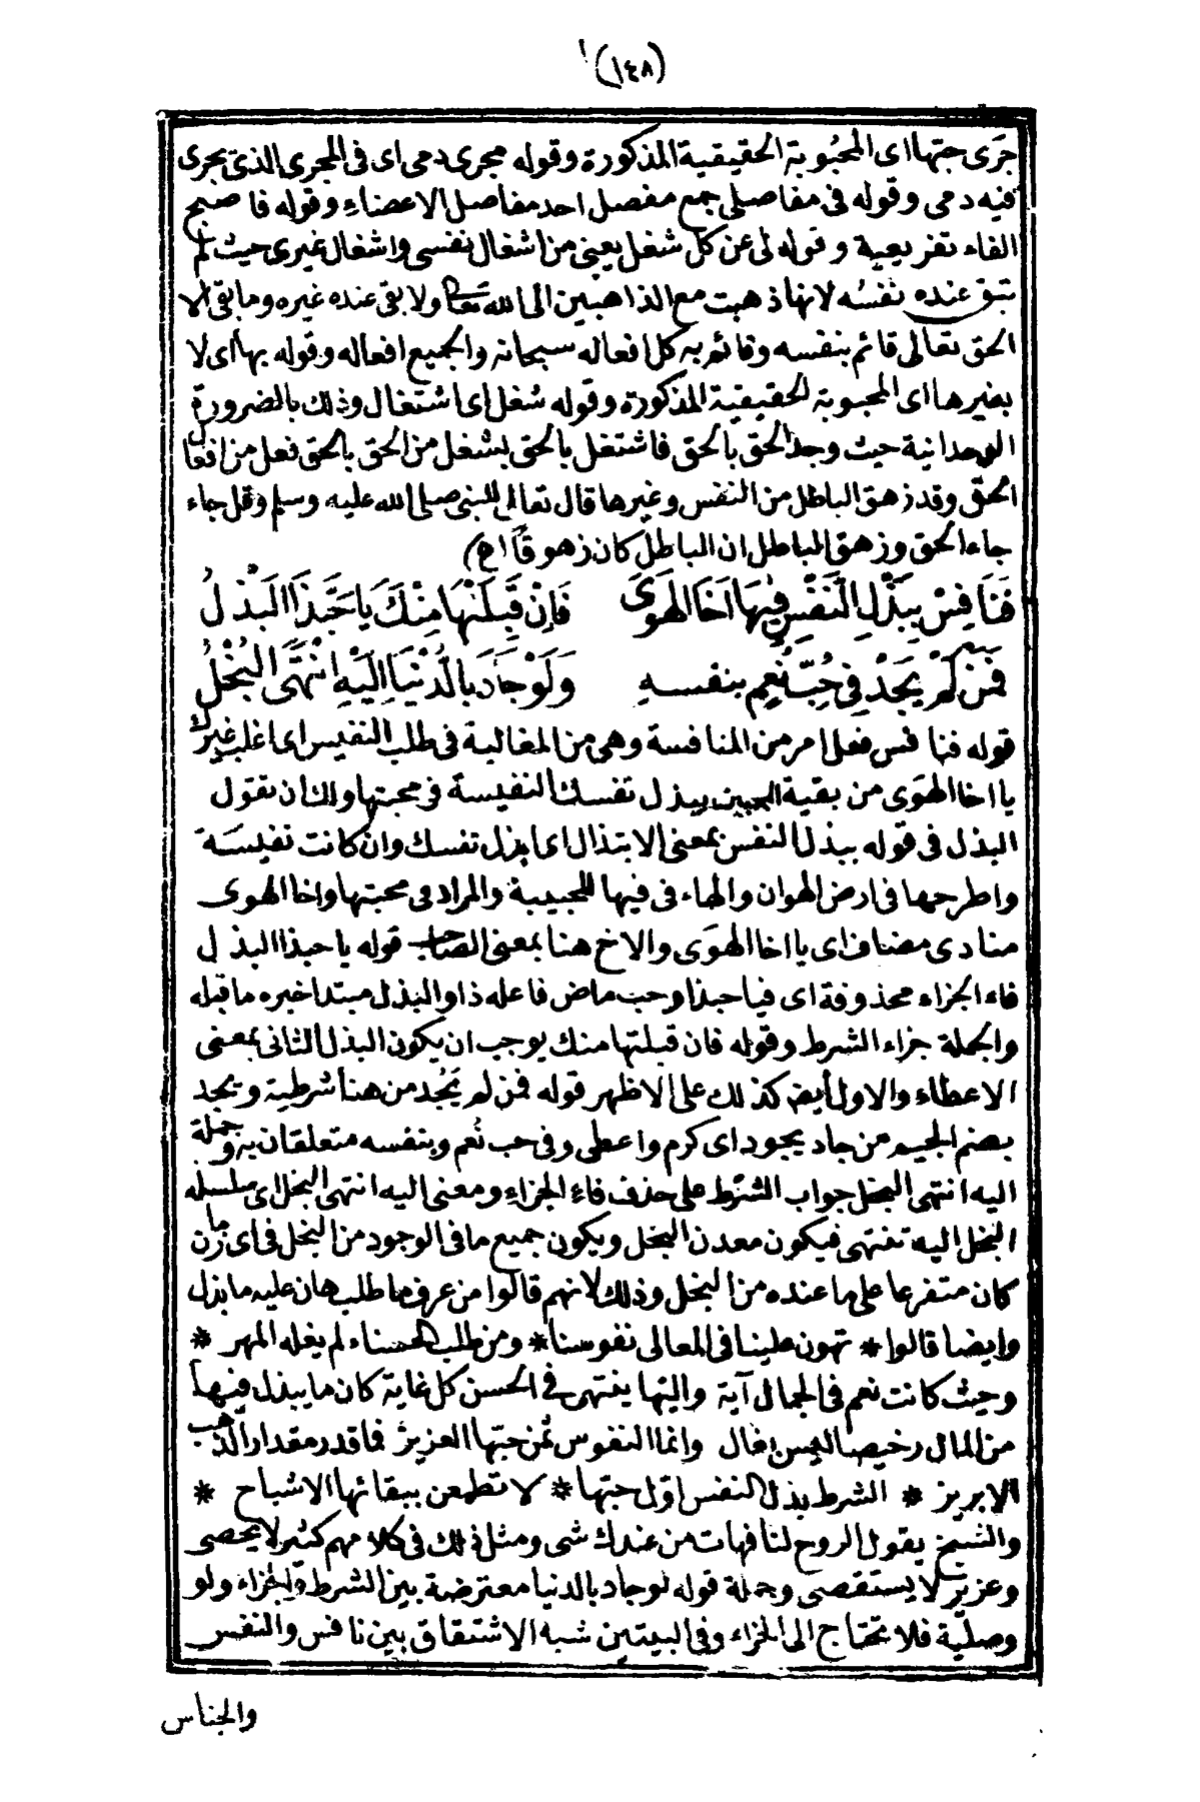 (١٤٨)
جَرَى حبّها اى المحبُوبة الحقيقية المذكورة وقوله مجرى دمى اى فى المجرى الذى يجرى
فيه دمى وقوله فى مفاصلى جمع مفصل احد مفاصل الاعضاء وقوله فاصبح
الفاء تفريعية وقوله لى عن كل شغل يعنى من اشغال نفسى واشغال غيرى حيث لم
تبق عنده نفسُه لانها ذهبت مع الذاهبين الى الله تعالى ولا بقى عنده غيره وما بقى الا
الحق تعالى قائم بنفسه وقائم به كل افعاله سبحانه والجميع افعاله وقوله بها أى لا
بغيرها اى المحبوبة الحقيقية المذكورة وقوله شغل اى اشتغال وذلك بالضرورة
الوحدانية حيث وجد الحق بالحق فاشتغل بالحق بشغل من الحق بالحق فعل من افعال
الحق وقد زهق الباطل من النفس وغيرها قال تعالى للنبى صلى الله عليه وسلم وقل جاء
جاء الحق وزهق الباطل ان الباطل كان زهوقاً (اﻫ)
فَنَافِسْ بِبَذْلِ النَّفْسِ فِيهَا اَخَا الهَوَى فَاِنْ قَبِلَتْهَا مِنْكَ يَا حَبَّذَا الْبَذْلُ
فَمَنْ لَمْ يَجُدْ فِى حُبِّ نُعْمٍ بنفسهِ وَلَوْ جَادَ بِالدُّنْيَا اِلَيْهِ انْتَهَى الْبُخْلُ
قوله فنافس فعل امر من المنافسة وهى من المغالبة فى طلب النفيس اى اغلب غيرك
يا اخا الهوَى من بقية المحبين ببذل نفسك النفيسة فى محبتها ولك ان تقول
البذل فى قوله ببذل النفس بمعنى الابتذال اى ابذل نفسك وان كانت نفيسَة
واطرحها فى ارض الهوان والهاء فى فيها للحبيبة والمراد فى محبتها واخا الهوى
منادى مضاف اى يا اخا الهوَى والاخ هنا بمعنى الصاحب قوله يا حبذا البذل
فاء الجزاء محذوفة اى فيا حبذا وحب ماض فاعله ذا والبذل مبتدا خبره ما قبله
والجملة جزاء الشرط وقوله فان قبلتها منك يوجب ان يكون البذل الثانى بمعنى
الاعطاء والاول أيضا كذلك على الاظهر قوله فمن لم يَجُد من هنا شرطية ويجد
بضم الجيم من جاد يجود اى كرم واعطى وفى حب نُعم وبنفسه متعلقان به وجملة
اليه انتهى البخل جواب الشرط على حذف فاء الجزاء ومعنى اليه انتهى البخل اى سلسلة
البخل اليه تنتهى فيكون معدن البخل ويكون جميع ما فى الوجود من البخل فى اى زمان
كان متفرعا على ما عنده من البخل وذلك لانهم قالوا من عرف ما طلب هان عليه ما بذل
وايضا قالوا * تهون علينا فى المعالى نفوسنا * ومن طلب الحسناء لم يغله المهر *
وحيث كانت نعم فى الجمال آية واليها ينتهى فى الحسن كل غاية كان ما يبذل فيها
من المال رخيصا ليس بغال وانما النفوس ثمن حبّها العزيز فما قدر مقدار الذهب
الابريز * الشرط بذل النفس اوّل حبّها * لا تطمعن ببقائها الاشباح *
والشيخ يقول الروح لنا فهات من عندك شى ومثل ذلك فى كلامهم كثير لا يحصى
وعزيز لا يستقصى وجملة قوله لو جاد بالدنيا معترضة بين الشرط والجزاء ولو
وصليّة فلا تحتاج الى الجزاء وفى البيتين شبه الاشتقاق بين نافس والنفس
والجناس